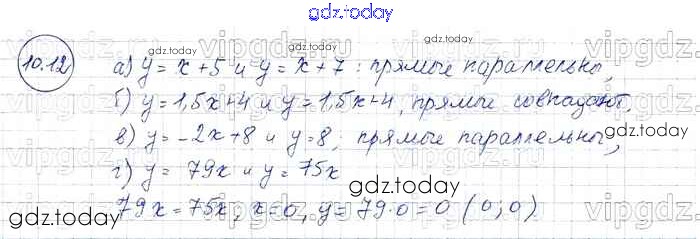 gdz.today
10.12
gdz.today
а) y = x + 5 и y = x + 7 : прямые параллельны,
б) y = 1,5x + 4 и y = 1,5x + 4, прямые совпадают,
в) y = -2x + 8 и y = 8; прямые параллельны,
г) y = 79x и y = 75x
gdz.today
79x = 75x, x = 0, y = 79·0 = 0 (0; 0)
gdz.today
gdz.today